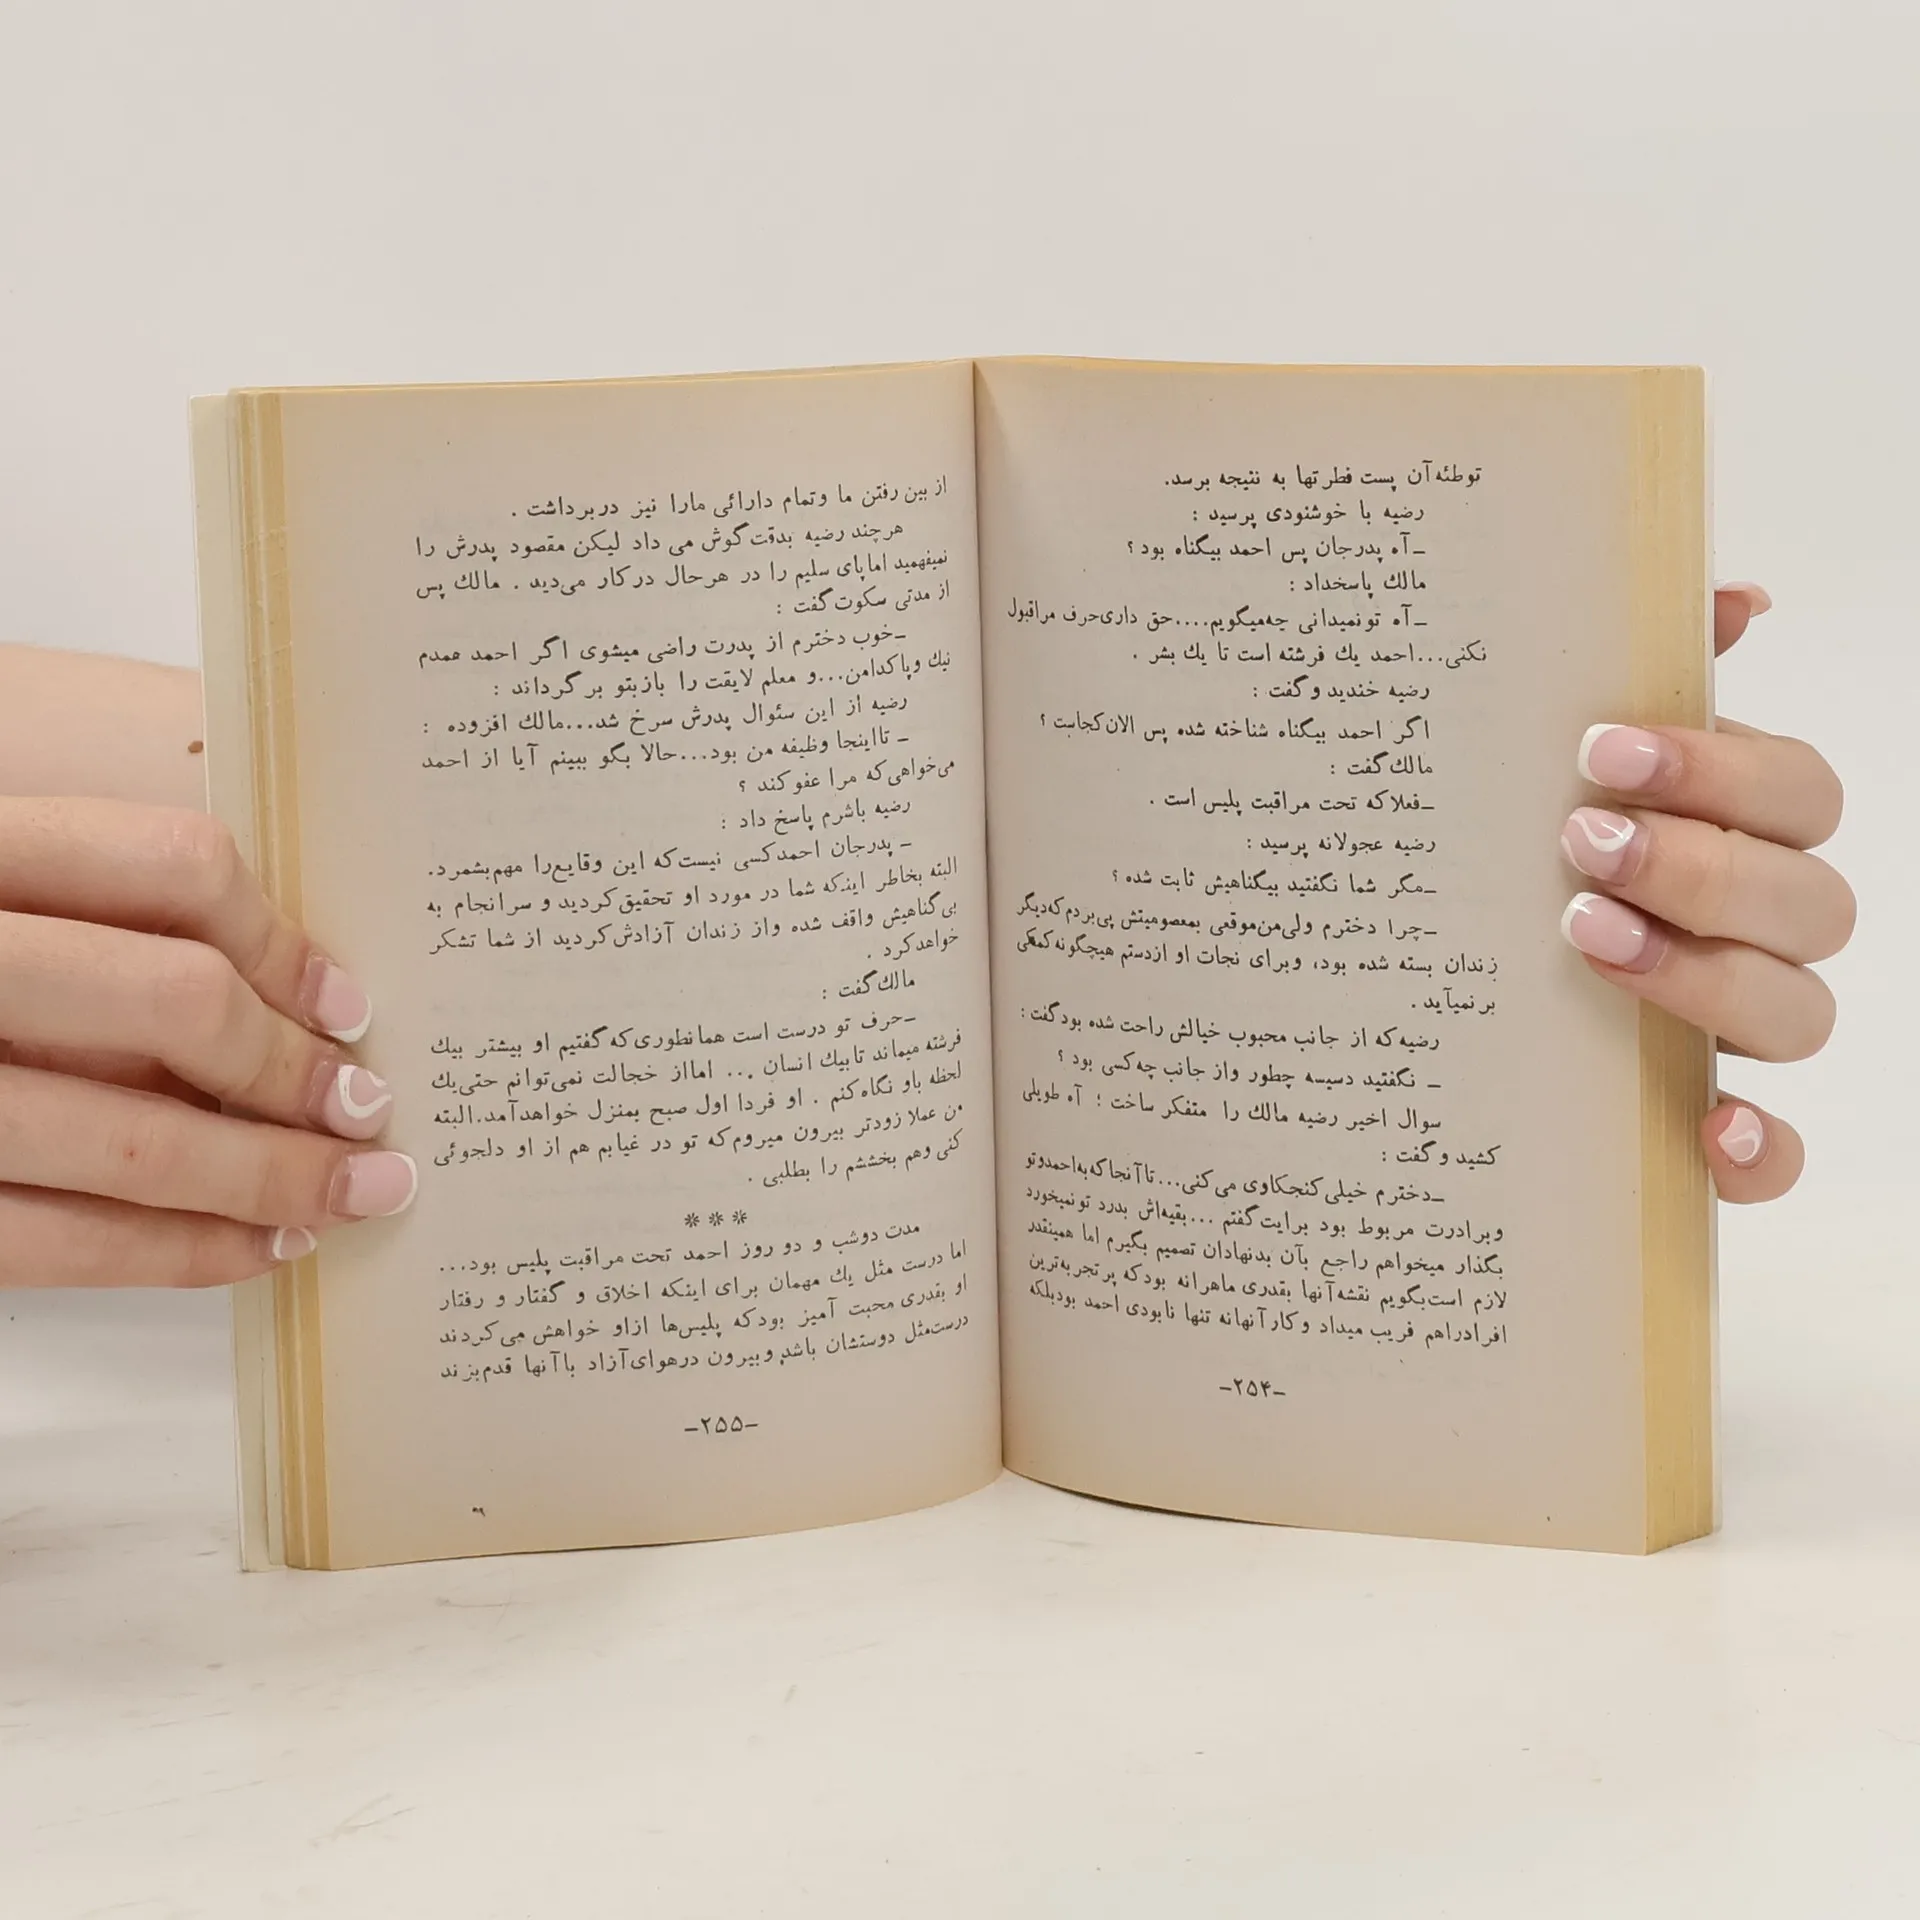 توطئه آن پست فطرتها به نتیجه برسد.
رضیه با خوشنودی پرسید :
ـ آه پدرجان پس احمد بیگناه بود ؟
مالك پاسخداد :
ـ آه تونمیدانی چه‌میگویم....حق داری‌حرف مراقبول
نکنی...احمد یك فرشته است تا یك بشر .
رضیه خندید و گفت :
اگر احمد بیگناه شناخته شده پس الان‌کجاست ؟
مالك گفت :
ـ فعلاکه تحت مراقبت پلیس است .
رضیه عجولانه پرسید :
ـ مگر شما نگفتید بیگناهیش ثابت شده ؟
ـ چرا دخترم ولی‌من‌موقعی بمعصومیتش پی‌بردم‌که‌دیگر
زندان بسته شده بود، وبرای نجات او ازدستم هیچگونه‌کمکی
برنمیآید .
رضیه‌که از جانب محبوب خیالش راحت شده بودگفت :
ـ نگفتید دسیسه چطور واز جانب چه‌کسی بود ؟
سوال اخیر رضیه مالك را متفکر ساخت ؛ آه طویلی
کشید و گفت :
ـ دخترم خیلی‌کنجکاوی می‌کنی...تاآنجاکه‌به‌احمدوتو
وبرادرت مربوط بود برایت‌گفتم ...بقیه‌اش بدرد تونمیخورد
بگذار میخواهم راجع بآن بدنهادان تصمیم بگیرم اما همینقدر
لازم است‌بگویم نقشه‌آنها بقدری ماهرانه بودکه پرتجربه‌ترین
افرادراهم فریب میداد وکارآنهانه تنها نابودی احمد بودبلکه
ـ۲۵۴ـ
از بین رفتن ما وتمام دارائی مارا نیز دربرداشت .
هرچند رضیه بدقت‌گوش می داد لیکن مقصود پدرش را
نمیفهمید اماپای سلیم را در هرحال درکار می‌دید . مالك پس
از مدتی سکوت‌گفت :
ـ خوب دخترم از پدرت راضی میشوی اگر احمد همدم
نیك وپاکدامن...و معلم لایقت را بازبتو برگرداند :
رضیه از این سئوال پدرش سرخ شد...مالك افزوده :
ـ تااینجا وظیفه من بود...حالا بگو ببینم آیا از احمد
می‌خواهی‌که مرا عفوکند ؟
رضیه باشرم پاسخ داد :
ـ پدرجان احمدکسی نیست‌که این وقایع‌را مهم‌بشمرد.
البته بخاطر اینکه شما در مورد او تحقیق‌کردید و سرانجام به
بی‌گناهیش واقف شده واز زندان آزادش‌کردید از شما تشکر
خواهدکرد .
مالك‌گفت :
ـ حرف تو درست است همانطوری‌که‌گفتیم او بیشتر بیك
فرشته میماند تابیك انسان ... امااز خجالت نمی‌توانم حتی‌یك
لحظه باو نگاه‌کنم . او فردا اول صبح بمنزل خواهدآمد.البته
من عملا زودتر بیرون میروم‌که تو در غیابم هم از او دلجوئی
کنی وهم بخششم را بطلبی .
❊ ❊ ❊
مدت دوشب و دو روز احمد تحت مراقبت پلیس بود...
اما درست مثل یك مهمان برای اینکه اخلاق و گفتار و رفتار
او بقدری محبت آمیز بودکه پلیس‌ها ازاو خواهش می‌کردند
درست‌مثل دوستشان باشد وبیرون درهوای‌آزاد باآنها قدم‌بزند
ـ۲۵۵ـ